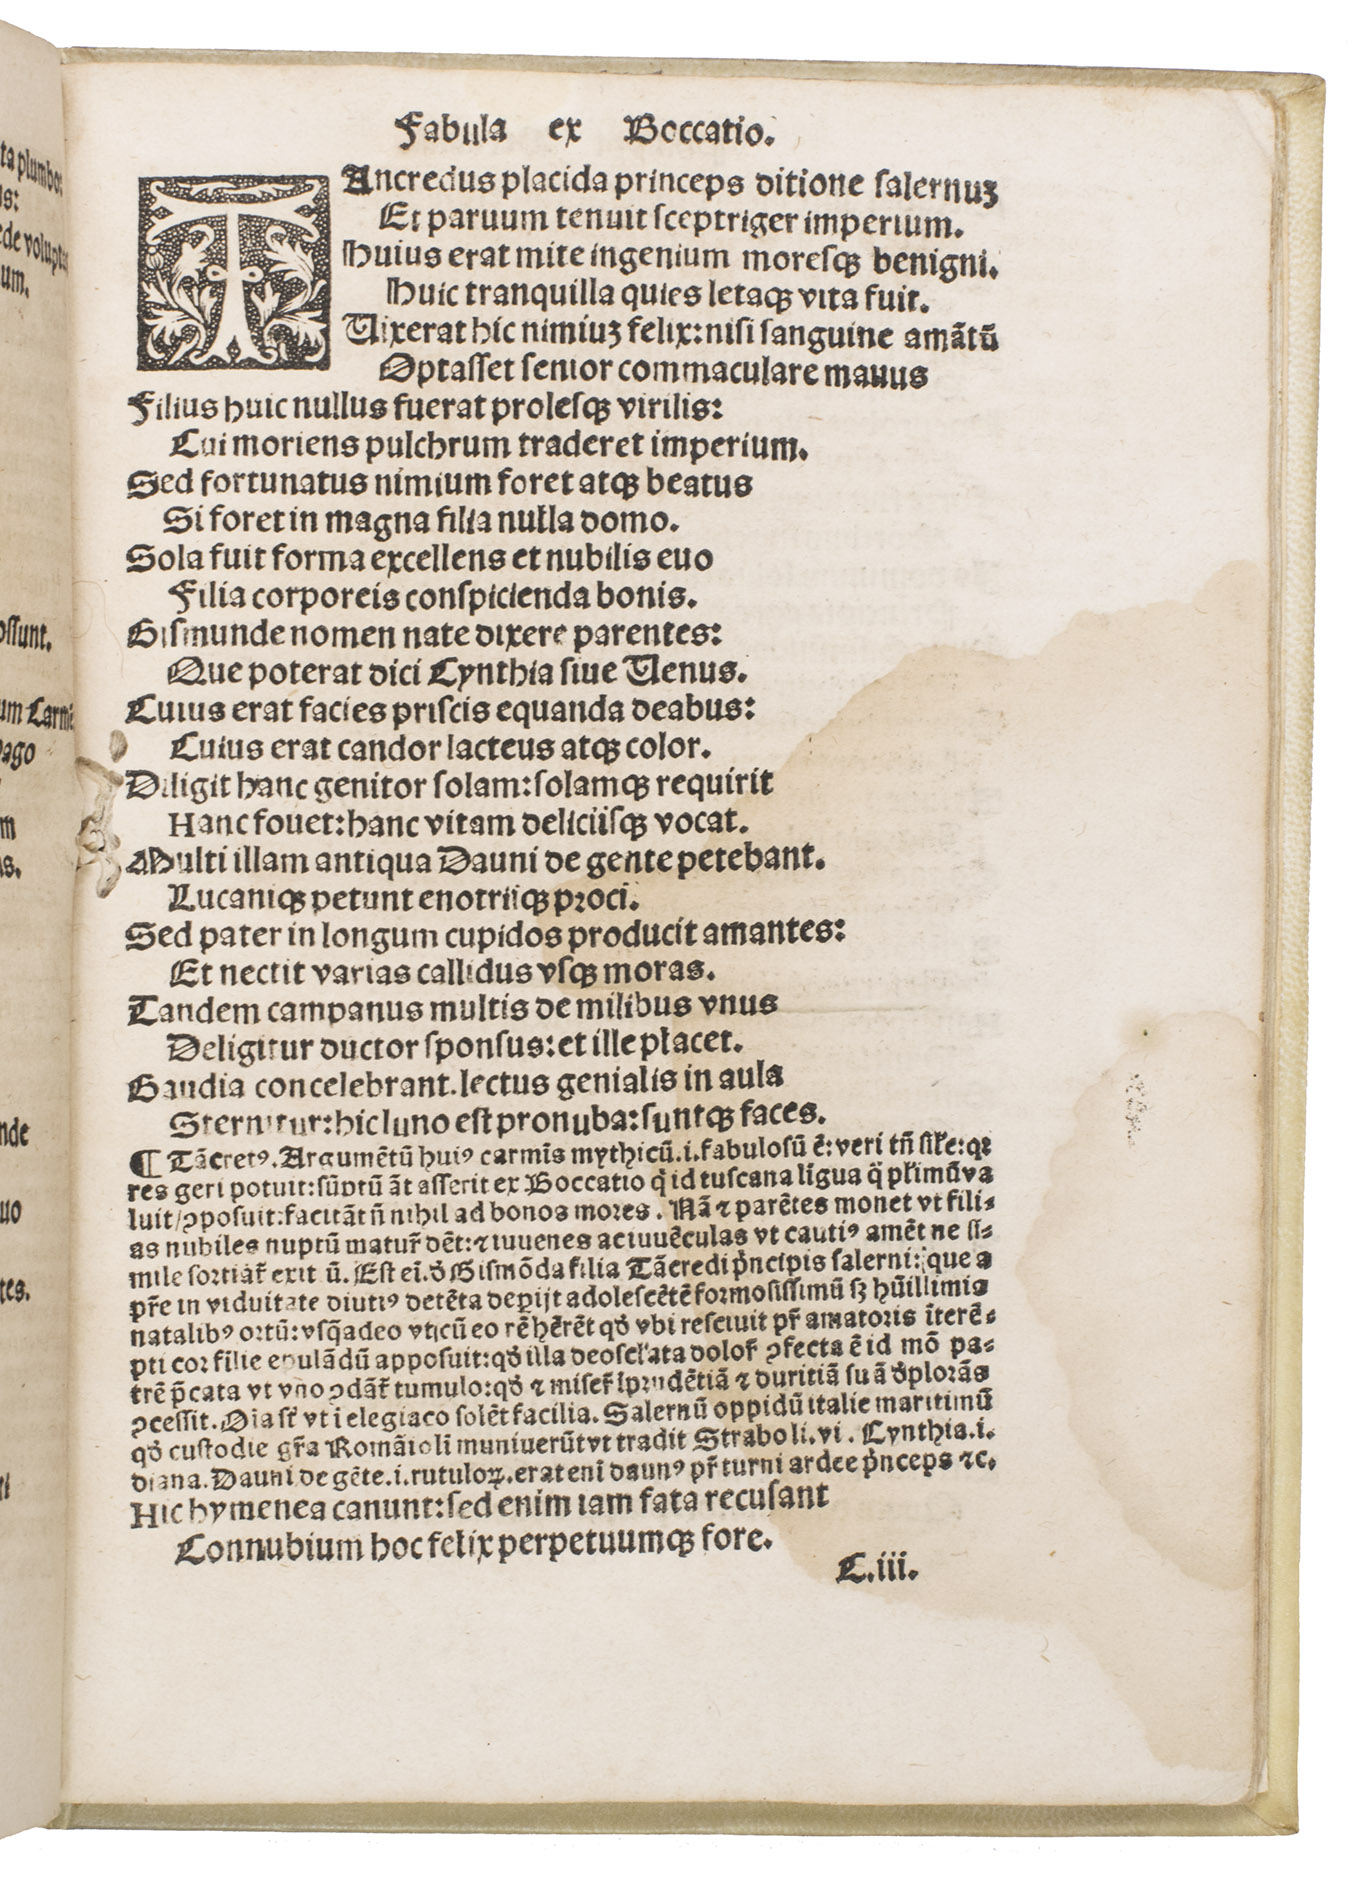 ta plumbo:
us:
ede volupta
um.
ossunt.
um Carmē
pago
m
as.
nde
uo
tes.
Fabula ex Boccatio.
TAncredus placida princeps ditione salernuꝫ
Et paruum tenuit sceptriger imperium.
Huius erat mite ingenium moresqꝫ benigni.
Huic tranquilla quies letaqꝫ vita fuit.
Uixerat hic nimiuꝫ felix: nisi sanguine amātū
Optasset senior commaculare mauus
Filius huic nullus fuerat prolesqꝫ virilis:
Cui moriens pulchrum traderet imperium.
Sed fortunatus nimium foret atqꝫ beatus
Si foret in magna filia nulla domo.
Sola fuit forma excellens et nubilis euo
Filia corporeis conspicienda bonis.
Gismunde nomen nate dixere parentes:
Que poterat dici Cynthia siue Uenus.
Cuius erat facies priscis equanda deabus:
Cuius erat candor lacteus atqꝫ color.
Diligit hanc genitor solam: solamqꝫ requirit
Hanc fouet: hanc vitam deliciisqꝫ vocat.
Multi illam antiqua Dauni de gente petebant.
Lucaniqꝫ petunt enotriiqꝫ proci.
Sed pater in longum cupidos producit amantes:
Et nectit varias callidus vsqꝫ moras.
Tandem campanus multis de milibus vnus
Deligitur ductor sponsus: et ille placet.
Gaudia concelebrant. lectus genialis in aula
Sternitur: hic Iuno est pronuba: suntqꝫ faces.
¶ Tācretꝰ. Argumētū huiꝰ carmīs mythicū .i. fabulosū ē: veri tñ sil̄e: qꝛ
res geri potuit: sūptū āt asserit ex Boccatio q̇ id tuscana līgua q̄ pl̄imū va
luit/ ꝯposuit: facit āt ñ nihil ad bonos mores. Nā ⁊ parētes monet vt fili-
as nubiles nuptū matur̄ dēt: ⁊ iuuenes ac iuuēculas vt cautiꝰ amēt ne si-
mile sortiāt̄ exitū. Est eī. ꝙ Gismōda filia Tācredi p̄ncipis salerni: que a
pr̄e in viduitate diutiꝰ detēta deꝑijt adolescētē formosissimū sꝫ hūillimis
natalibꝰ ortū: vsq̄adeo vt cū eo rē hr̄ēt ꝙ vbi resciuit pr̄ amatoris īterē-
pti cor filie epulādū apposuit: ꝙ illa deosc̄lata dolor̄ ꝯfecta ē id mō pa-
trē p̄cata vt vno ꝯdāt̄ tumulo: ꝙ ⁊ miser̄ īprudētiā ⁊ duritiā suā ꝙplorās
ꝯcessit. Oīa st̄ vt ī elegiaco solēt facilia. Salernū oppidū italie maritimū
ꝙ custodie gr̄a Romāi olī muniuerūt vt tradit Strabo li. vi. Cynthia .i.
diana. Dauni de gēte .i. rutuloꝝ. erat enī daunꝰ pr̄ turni ardee p̄nceps ⁊c.
Hic hymenea canunt: sed enim iam fata recusant
Connubium hoc felix perpetuumqꝫ fore.
C.iii.